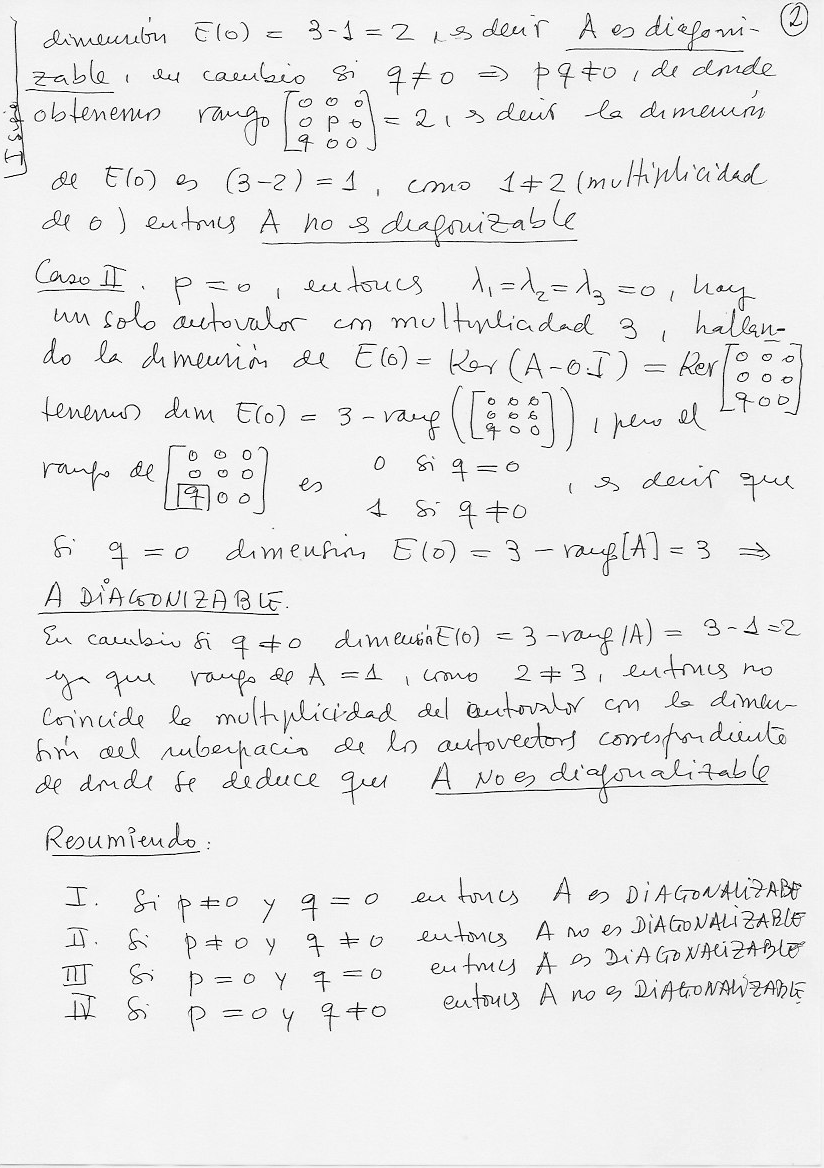 2
dimensión E(0) = 3-1 = 2, es decir A es diagoni-
zable, en cambio si q ≠ 0 ⇒ pq ≠ 0, de donde
obtenemos rango [0 0 0; 0 p 0; q 0 0] = 2, es decir la dimensión
de E(0) es (3-2) = 1, como 1 ≠ 2 (multiplicidad
de 0) entonces A no es diagonizable
Caso II. p = 0, entonces λ₁=λ₂=λ₃=0, hay
un solo autovalor con multiplicidad 3, hallan-
do la dimensión de E(0) = Ker (A-0.I) = Ker [0 0 0; 0 0 0; q 0 0]
tenemos dim E(0) = 3 - rang ([0 0 0; 0 0 0; q 0 0]), pero el
rango de [0 0 0; 0 0 0; q 0 0] es 0 si q = 0
1 si q ≠ 0, es decir que
si q = 0 dimensión E(0) = 3 - rang[A] = 3 ⇒
A DIAGONIZABLE.
En cambio si q ≠ 0 dimensión E(0) = 3 - rang (A) = 3-1=2
ya que rango de A = 1, como 2 ≠ 3, entonces no
coincide la multiplicidad del autovalor con la dimen-
sión del subespacio de los autovectores correspondiente
de donde se deduce que A No es diagonalizable
Resumiendo:
I. Si p ≠ 0 y q = 0 entonces A es DIAGONALIZABE
II. Si p ≠ 0 y q ≠ 0 entonces A no es DIAGONALIZABLE
III Si p = 0 y q = 0 entonces A es DIAGONALIZABLE
IV Si p = 0 y q ≠ 0 entonces A no es DIAGONALIZABLE